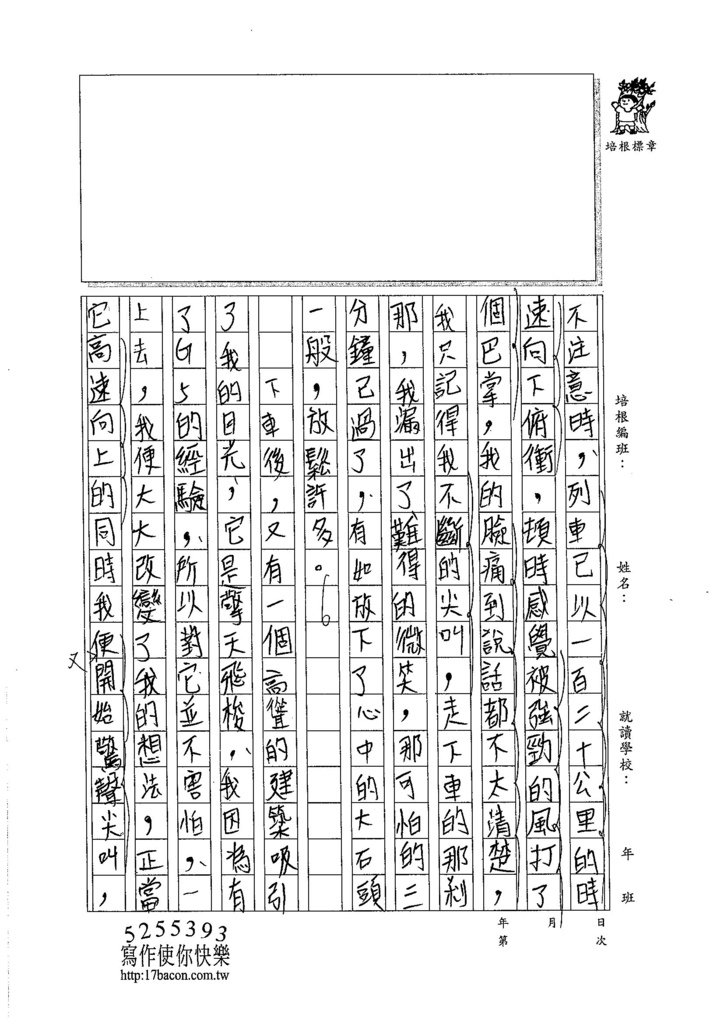 培根標章
培根編班：
姓名：
就讀學校：
年 班
年 月 日
第 次
不注意時，列車已以一百二十公里的時
速向下俯衝，頓時感覺被強勁的風打了
個巴掌，我的臉痛到說話都不太清楚，
我只記得我不斷的尖叫，走下車的那剎
那，我漏出了難得的微笑，那可怕的三
分鐘已過了，有如放下了心中的大石頭
一般，放鬆許多。
下車後，又有一個高聳的建築吸引
了我的目光，它是擎天飛梭，我因為有
了G5的經驗，所以對它並不害怕，一
上去，我便大大改變了我的想法，正當
它高速向上的同時我便開始驚聲尖叫，
又
5255393
寫作使你快樂
http:17bacon.com.tw